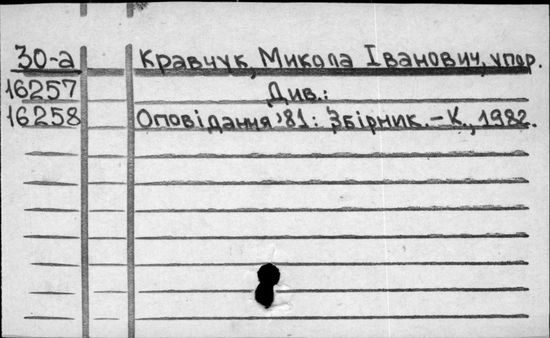 30-а Кравчук, Микола Іванович, упор.
16257 Див.:
16258 Оповідання '81: Збірник. – К., 1982.